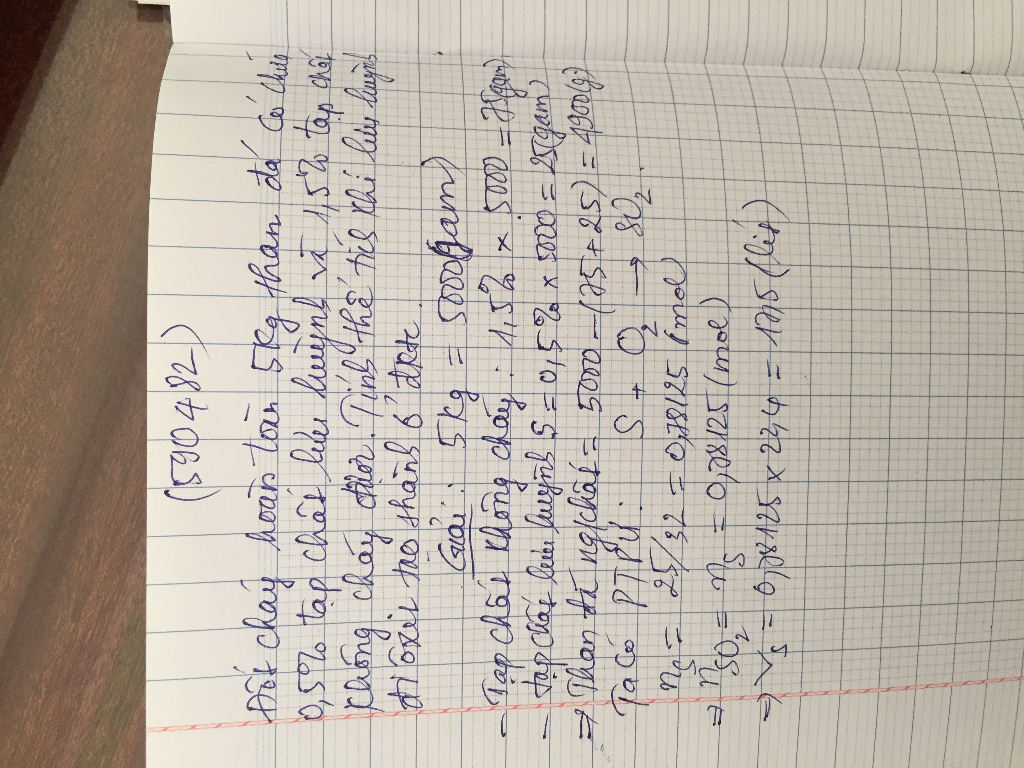 (590482)
Đốt cháy hoàn toàn 5kg than đá có chứa
0,5% tạp chất lưu huỳnh và 1,5% tạp chất
không cháy được. Tính thể tích khí lưu huỳnh
điôxit tạo thành ở đktc.
Giải: 5kg = 5000(gam)
- Tạp chất không cháy: 1,5% x 5000 = 75(gam)
- tạp chất lưu huỳnh S = 0,5% x 5000 = 25(gam)
⇒ Than đá ng/chất = 5000 - (75+25) = 4900(g)
Ta có PTPU: S + O2 → SO2.
nS = 25/32 = 0,78125 (mol)
⇒ nSO2 = nS = 0,78125 (mol)
⇒ VS = 0,78125 x 22,4 = 17,5 (lít)